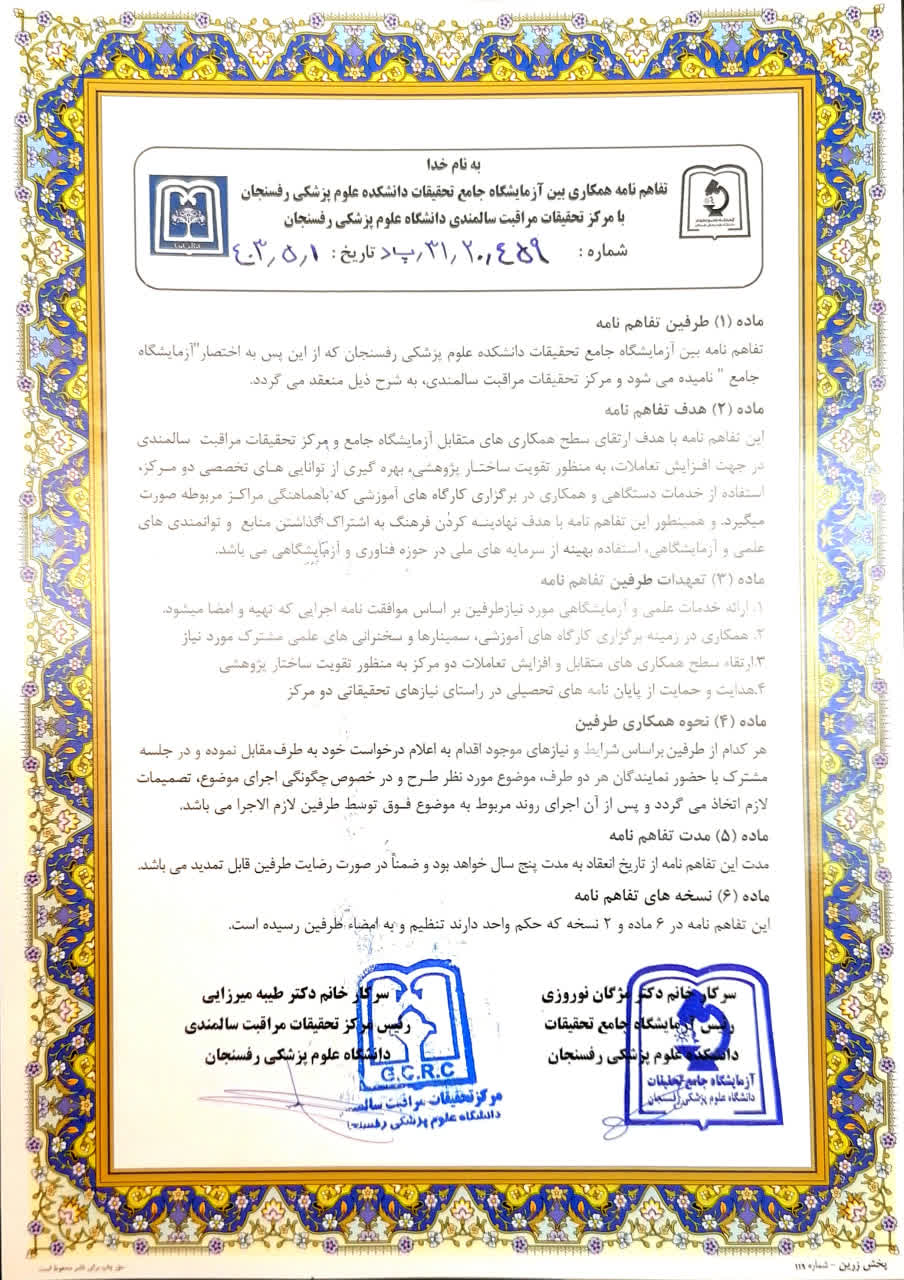 به نام خدا
تفاهم نامه همکاری بین آزمایشگاه جامع تحقیقات دانشکده علوم پزشکی رفسنجان
با مرکز تحقیقات مراقبت سالمندی دانشگاه علوم پزشکی رفسنجان
شماره : ۳۱٫۲۰٫۴۵۹٫پ۵ تاریخ : ۴۰۳٫۵٫۱
ماده (۱) طرفین تفاهم نامه
تفاهم نامه بین آزمایشگاه جامع تحقیقات دانشکده علوم پزشکی رفسنجان که از این پس به اختصار"آزمایشگاه
جامع " نامیده می شود و مرکز تحقیقات مراقبت سالمندی، به شرح ذیل منعقد می گردد.
ماده (۲) هدف تفاهم نامه
این تفاهم نامه با هدف ارتقای سطح همکاری های متقابل آزمایشگاه جامع و مرکز تحقیقات مراقبت سالمندی
در جهت افزایش تعاملات، به منظور تقویت ساختار پژوهشی، بهره گیری از توانایی های تخصصی دو مرکز،
استفاده از خدمات دستگاهی و همکاری در برگزاری کارگاه های آموزشی که باهماهنگی مراکز مربوطه صورت
میگیرد. و همینطور این تفاهم نامه با هدف نهادینه کردن فرهنگ به اشتراک گذاشتن منابع و توانمندی های
علمی و آزمایشگاهی، استفاده بهینه از سرمایه های ملی در حوزه فناوری و آزمایشگاهی می باشد.
ماده (۳) تعهدات طرفین تفاهم نامه
۱. ارائه خدمات علمی و آزمایشگاهی مورد نیازطرفین بر اساس موافقت نامه اجرایی که تهیه و امضا میشود.
۲. همکاری در زمینه برگزاری کارگاه های آموزشی، سمینارها و سخنرانی های علمی مشترک مورد نیاز
۳.ارتقاء سطح همکاری های متقابل و افزایش تعاملات دو مرکز به منظور تقویت ساختار پژوهشی
۴.هدایت و حمایت از پایان نامه های تحصیلی در راستای نیازهای تحقیقاتی دو مرکز
ماده (۴) نحوه همکاری طرفین
هر کدام از طرفین براساس شرایط و نیازهای موجود اقدام به اعلام درخواست خود به طرف مقابل نموده و در جلسه
مشترک با حضور نمایندگان هر دو طرف، موضوع مورد نظر طرح و در خصوص چگونگی اجرای موضوع، تصمیمات
لازم اتخاذ می گردد و پس از آن اجرای روند مربوط به موضوع فوق توسط طرفین لازم الاجرا می باشد.
ماده (۵) مدت تفاهم نامه
مدت این تفاهم نامه از تاریخ انعقاد به مدت پنج سال خواهد بود و ضمناً در صورت رضایت طرفین قابل تمدید می باشد.
ماده (۶) نسخه های تفاهم نامه
این تفاهم نامه در ۶ ماده و ۲ نسخه که حکم واحد دارند تنظیم و به امضاء طرفین رسیده است.
سرکار خانم دکتر مژگان نوروزی
رئیس آزمایشگاه جامع تحقیقات
دانشکده علوم پزشکی رفسنجان
آزمایشگاه جامع تحقیقات
دانشگاه علوم پزشکی رفسنجان
سرکار خانم دکتر طیبه میرزایی
رئیس مرکز تحقیقات مراقبت سالمندی
دانشگاه علوم پزشکی رفسنجان
G.C.R.C
مرکز تحقیقات مراقبت سالمندی
دانشگاه علوم پزشکی رفسنجان
پخش زرین - شماره ۱۱۹
حق چاپ برای ناشر محفوظ است